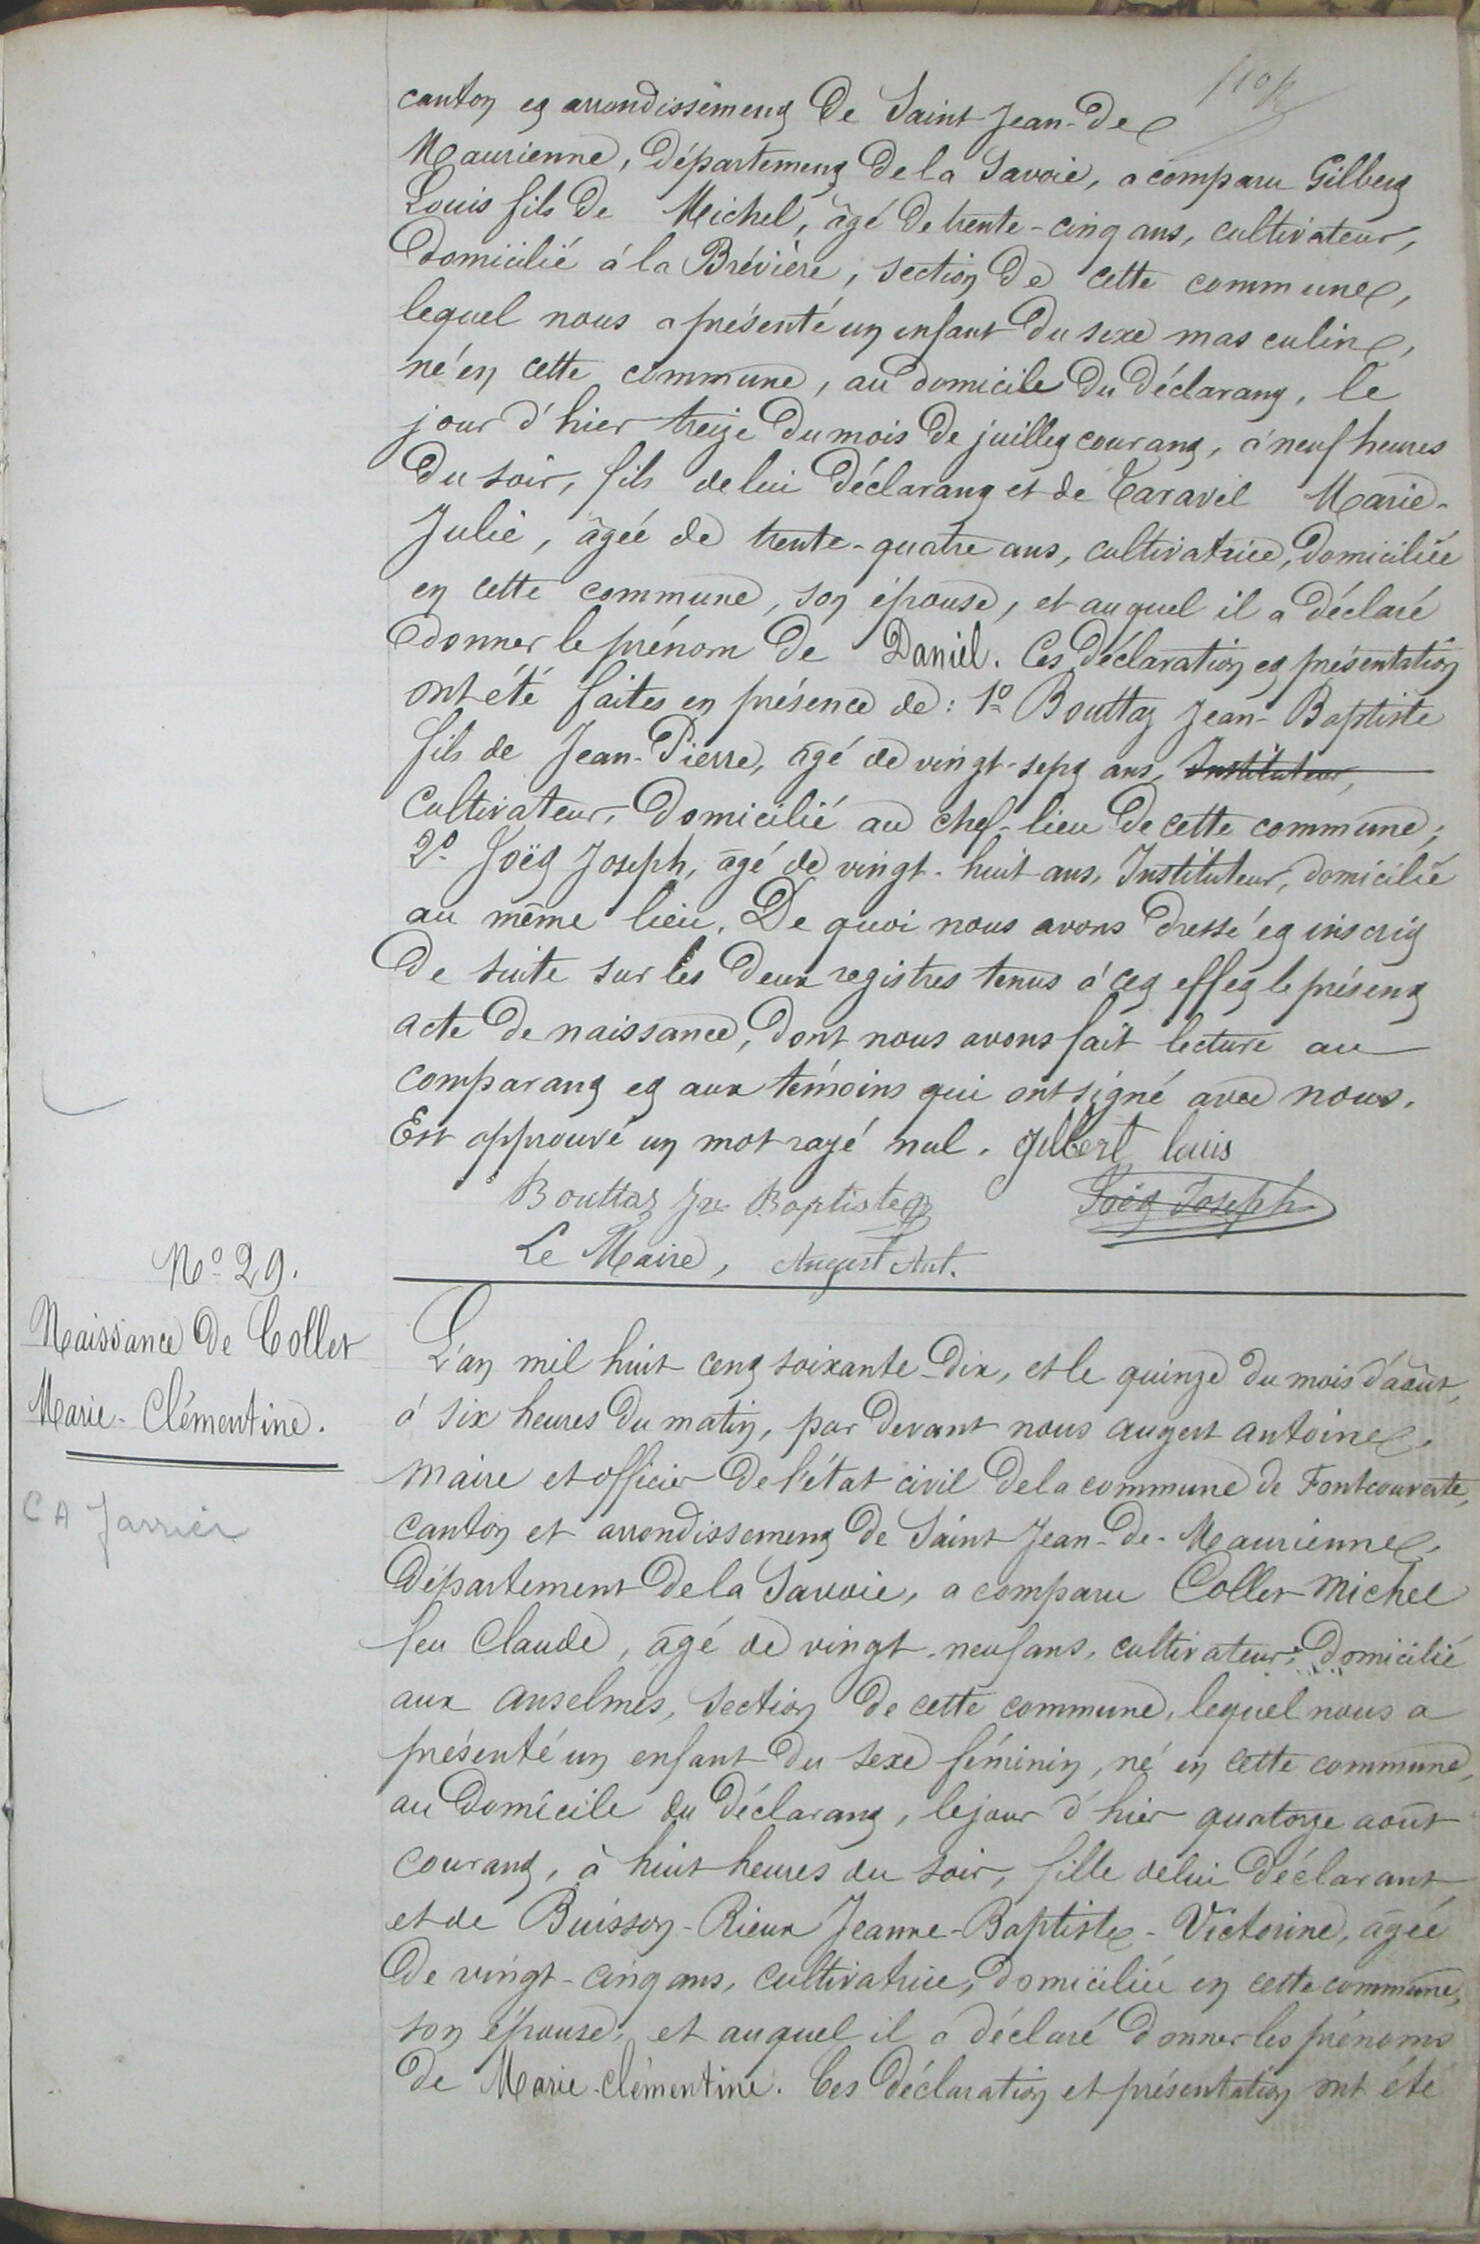 canton et arrondissement de Saint-Jean-de
Maurienne, département de la Savoie, a comparu Gilbert
Louis fils de Michel, âgé de trente-cinq ans, cultivateur,
domicilié à la Brévière, section de cette commune,
lequel nous a présenté un enfant du sexe masculin,
né en cette commune, au domicile du déclarant, le
jour d'hier treize du mois de juillet courant, à neuf heures
du soir, fils de lui déclarant et de Taravel Marie-
Julie, âgée de trente-quatre ans, cultivatrice, domiciliée
en cette commune, son épouse, et auquel il a déclaré
donner le prénom de Daniel. Ces déclaration et présentation
ont été faites en présence de: 1º Bouttaz Jean-Baptiste
fils de Jean-Pierre, âgé de vingt-sept ans, Instituteur,
cultivateur, domicilié au chef-lieu de cette commune;
2º Joseph, âgé de vingt-huit ans, Instituteur, domicilié
au même lieu. De quoi nous avons dressé et inscrit
de suite sur les deux registres tenus à cet effet le présent
acte de naissance, dont nous avons fait lecture au
comparant et aux témoins qui ont signé avec nous.
Est approuvé un mot rayé nul. Gilbert louis
Bouttaz Jn Baptiste Joseph
Le Maire, Augert Ant.
Nº 29.
Naissance de Collet
Marie-Clémentine.
CA Jarrier
L'an mil huit cent soixante-dix, et le quinze du mois d'août,
à six heures du matin, par devant nous augert antoine,
maire et officier de l'état civil de la commune de Fontcouverte,
canton et arrondissement de Saint Jean-de-Maurienne,
département de la Savoie, a comparu Collet Michel
feu Claude, âgé de vingt-neuf ans, cultivateur, domicilié
aux anselmes, section de cette commune, lequel nous a
présenté un enfant du sexe féminin, né en cette commune,
au domicile du déclarant, le jour d'hier quatorze août
courant, à huit heures du soir, fille de lui déclarant
et de Buisson-Rieux Jeanne-Baptiste-Victorine, âgée
de vingt-cinq ans, cultivatrice, domiciliée en cette commune,
son épouse, et auquel il a déclaré donner les prénoms
de Marie-Clémentine. Ces déclaration et présentation ont été